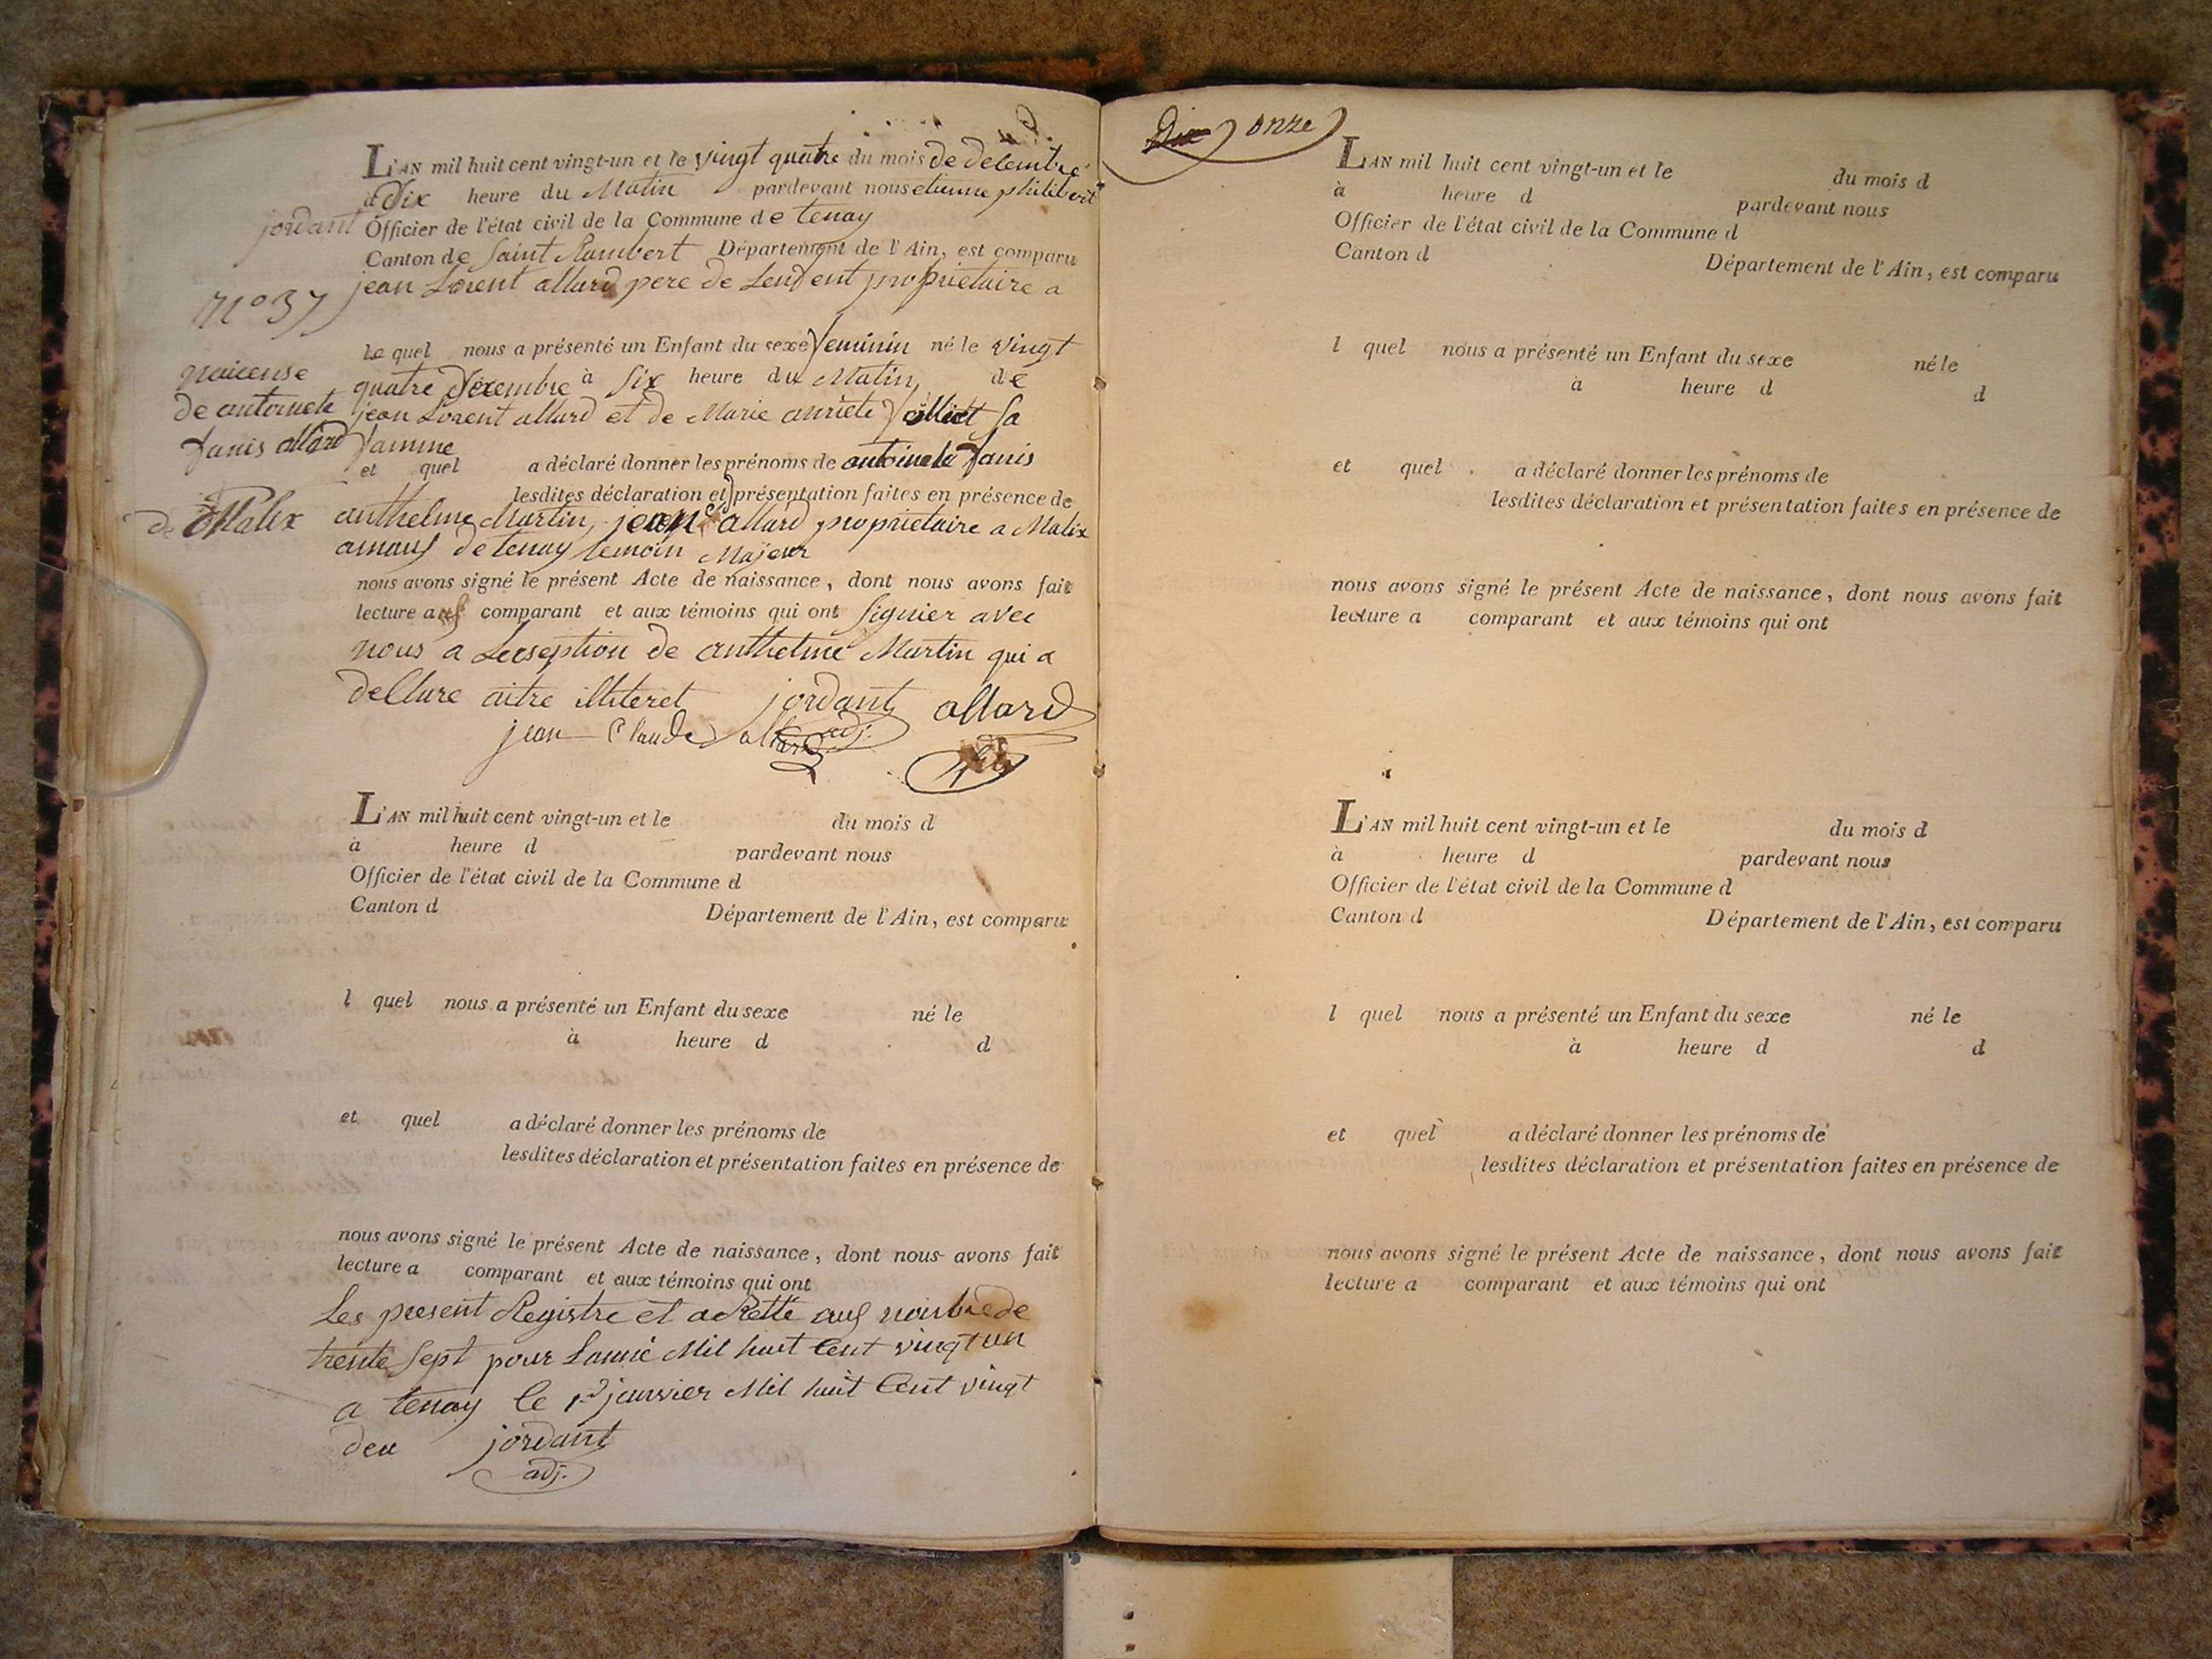 L'AN mil huit cent vingt-un et le vingt quatre du mois de decembre
à Dix heure du Matin pardevant nous etienne philibert
jordant Officier de l'état civil de la Commune de tenay
Canton de Saint Rambert Département de l'Ain, est comparu
jean Lorent allard pere de Lendent proprietaire a
n° 37
le quel nous a présenté un Enfant du sexe feminin né le vingt
quatre decembre à six heure du Matin, de
jean Lorent allard et de Marie anriete sa
famme
naicense
de antoinete
fanis allard
de Malix
et quel a déclaré donner les prénoms de antoinete fanis
lesdites déclaration et présentation faites en présence de
anthelme Martin, jean Cde allard proprietaire a Malix
de tenay temoin Majeur
nous avons signé le présent Acte de naissance, dont nous avons fait
lecture aus comparant et aux témoins qui ont signier avec
nous a Lexseption de anthelme Martin qui a
dellare aitre illiteret jordant allard
adj.
jean Claude allard
L'AN mil huit cent vingt-un et le du mois d
à heure d pardevant nous
Officier de l'état civil de la Commune d
Canton d Département de l'Ain, est comparu
l quel nous a présenté un Enfant du sexe né le
à heure d d
et quel a déclaré donner les prénoms de
lesdites déclaration et présentation faites en présence de
nous avons signé le présent Acte de naissance, dont nous avons fait
lecture a comparant et aux témoins qui ont
Les present Registre et a Rette aus nombre de
trente sept pour Lannié Mil huit Cent vingt un
a tenay le 1er janvier Mil huit Cent vingt
deu jordant
adj.
Dix onze
L'AN mil huit cent vingt-un et le du mois d
à heure d pardevant nous
Officier de l'état civil de la Commune d
Canton d Département de l'Ain, est comparu
l quel nous a présenté un Enfant du sexe né le
à heure d d
et quel a déclaré donner les prénoms de
lesdites déclaration et présentation faites en présence de
nous avons signé le présent Acte de naissance, dont nous avons fait
lecture a comparant et aux témoins qui ont
L'AN mil huit cent vingt-un et le du mois d
à heure d pardevant nous
Officier de l'état civil de la Commune d
Canton d Département de l'Ain, est comparu
l quel nous a présenté un Enfant du sexe né le
à heure d d
et quel a déclaré donner les prénoms de
lesdites déclaration et présentation faites en présence de
nous avons signé le présent Acte de naissance, dont nous avons fait
lecture a comparant et aux témoins qui ont